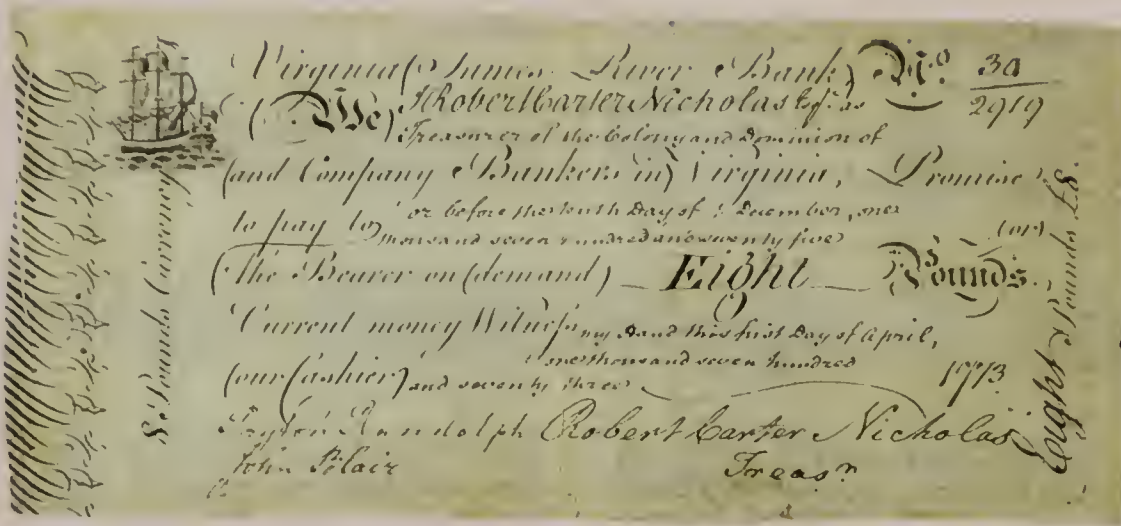 Virginia (James River Bank) No. 30
2919
(We) Robert Carter Nicholas Esqr. as
Treasurer of the Colony and Dominion of
(and Company Bankers in) Virginia, Promise
to pay to or before the tenth Day of December, one
thousand seven hundred and seventy five (or)
(the Bearer on (demand) Eight Pounds.
Current money Witness my Hand this first Day of April,
one thousand seven hundred
(our Cashier) and seventy three 1773
Peyton Randolph Robert Carter Nicholas
John Blair Treasr.
8. Pounds Currency
Eight Pounds £8.